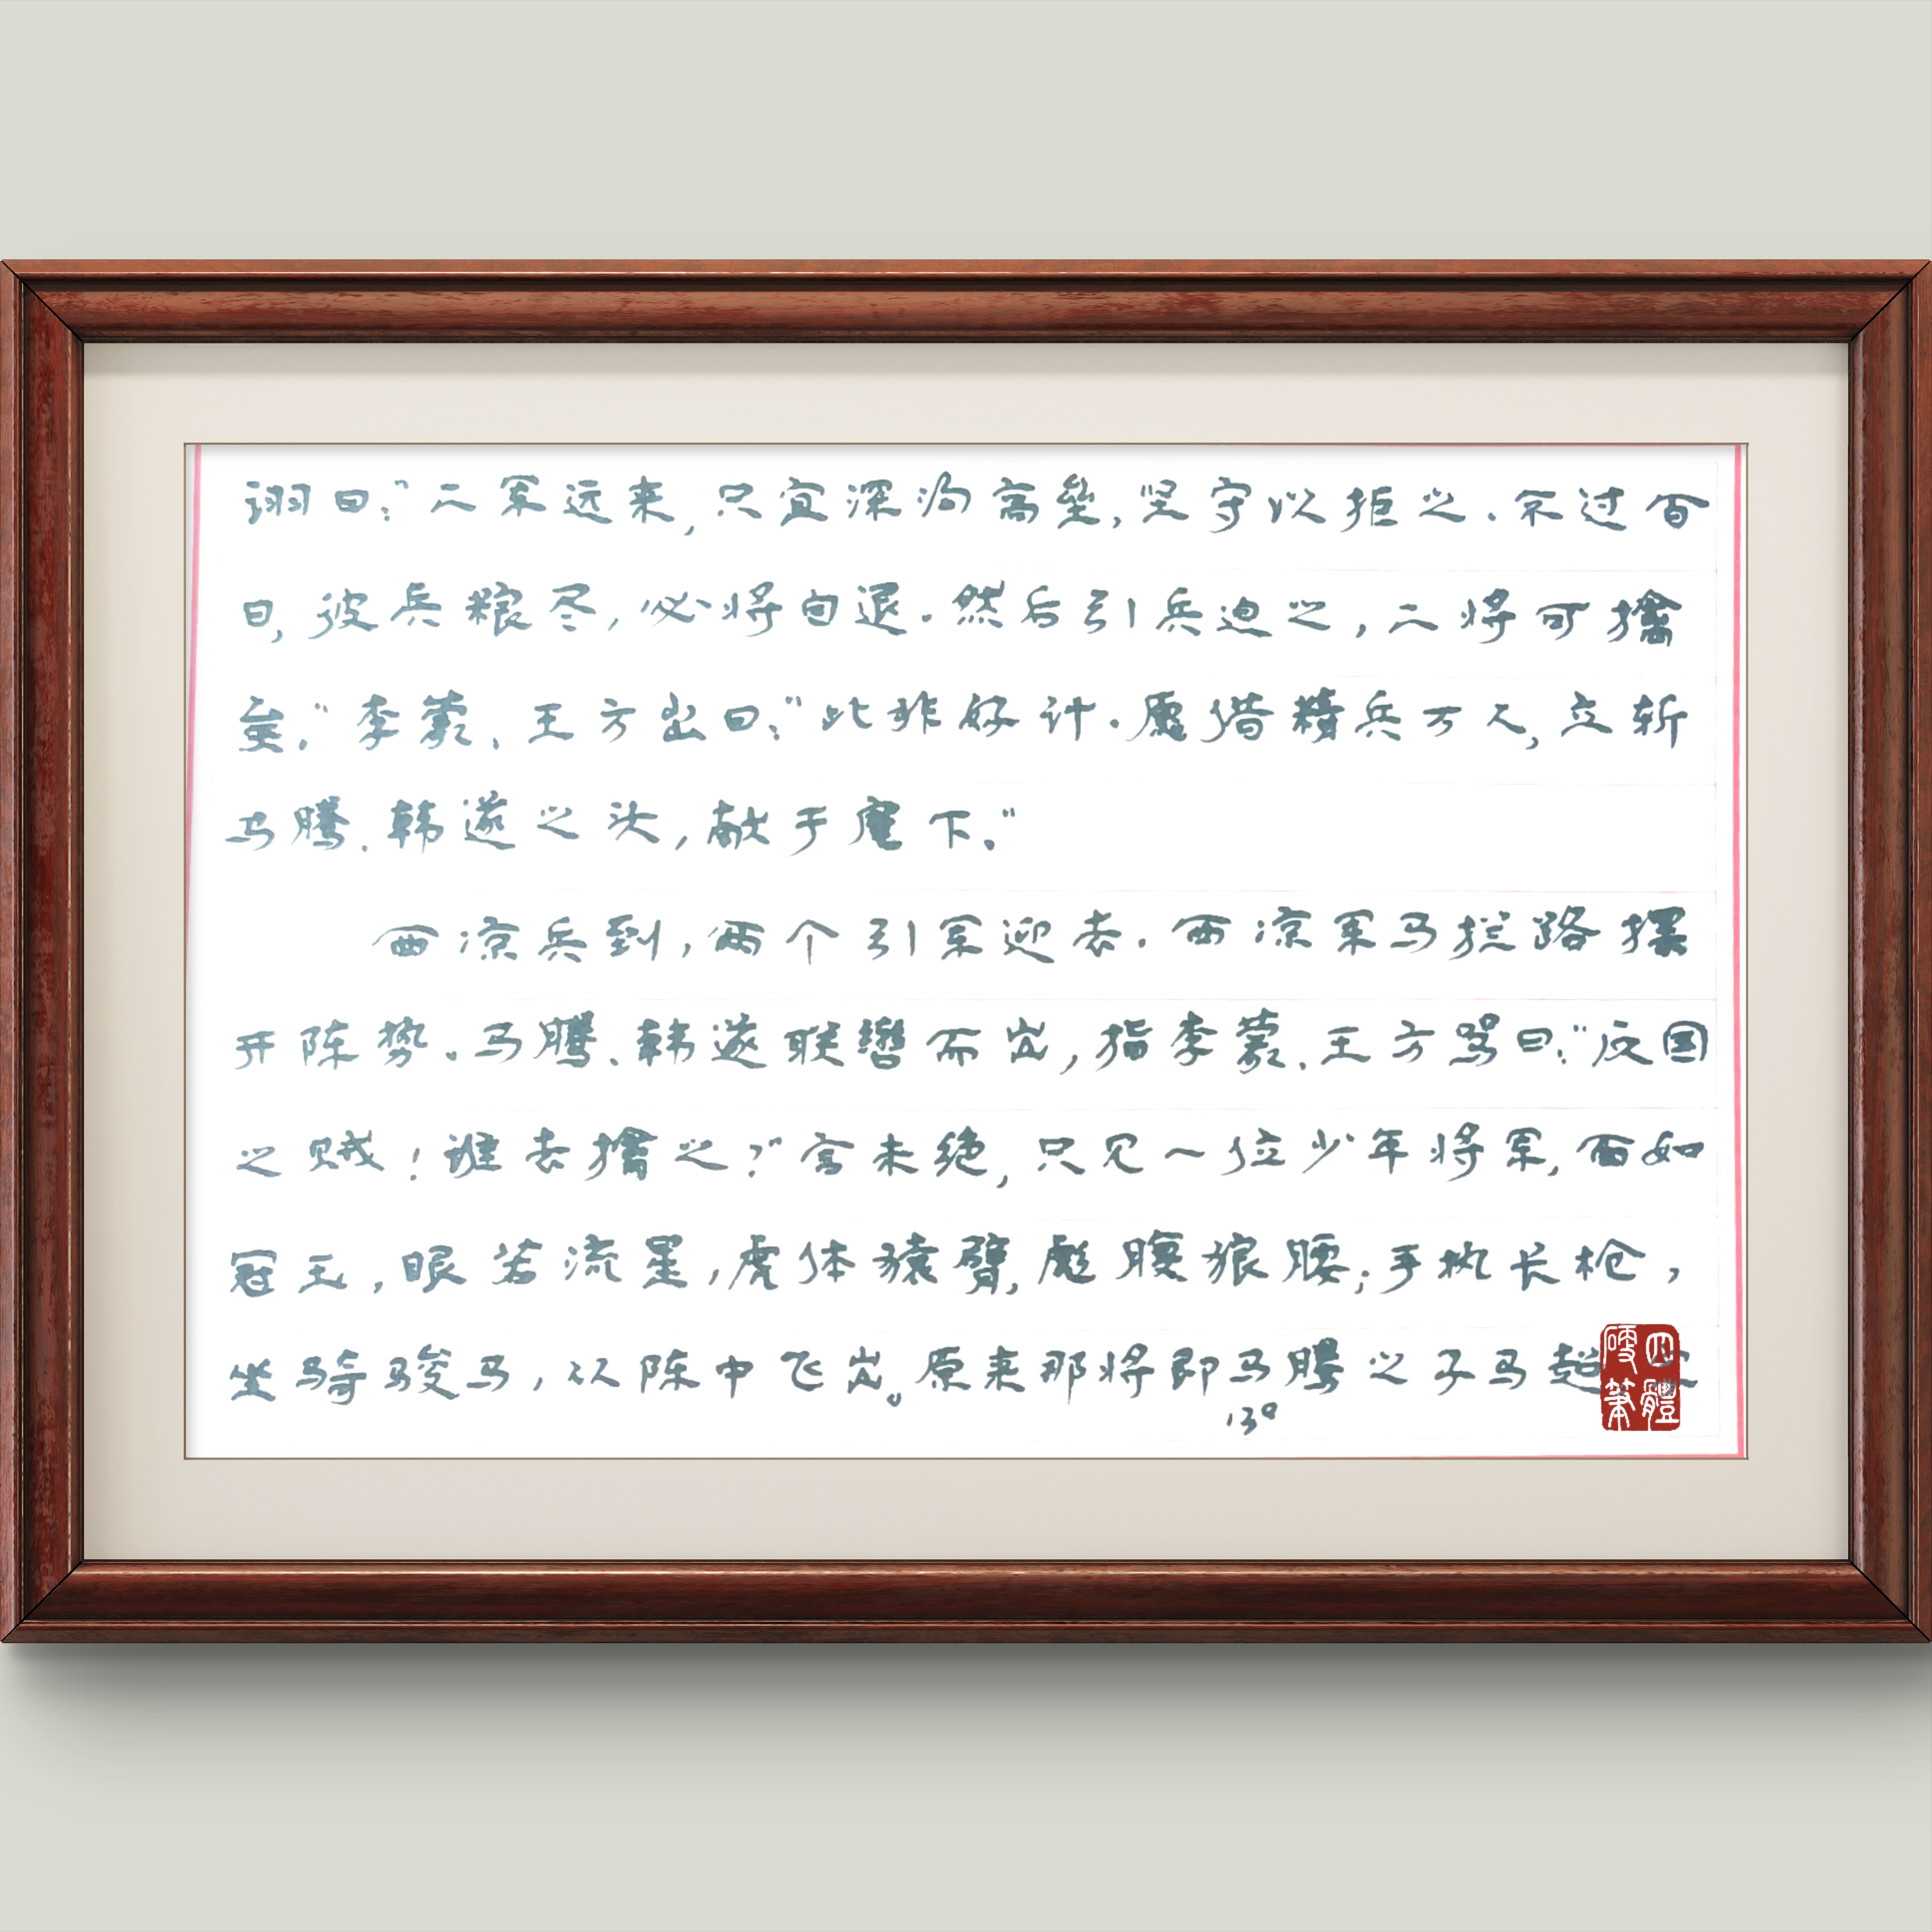 诩曰：“二军远来，只宜深沟高垒，坚守以拒之．不过百
日，彼兵粮尽，必将自退．然后引兵追之，二将可擒
矣．”李蒙、王方出曰：“此非好计．愿借精兵万人，立斩
马腾、韩遂之头，献于麾下．”
西凉兵到，两个引军迎去．西凉军马拦路摆
开阵势．马腾、韩遂联辔而出，指李蒙、王方骂曰：“反国
之贼！谁去擒之？”言未绝，只见一位少年将军，面如
冠玉，眼若流星，虎体猿臂，彪腹狼腰；手执长枪，
坐骑骏马，从阵中飞出。原来那将即马腾之子马超
130
四體
硬筆